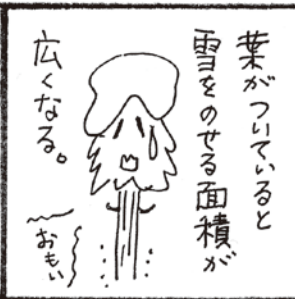 葉がついていると
雪をのせる面積が
広くなる。
おもい